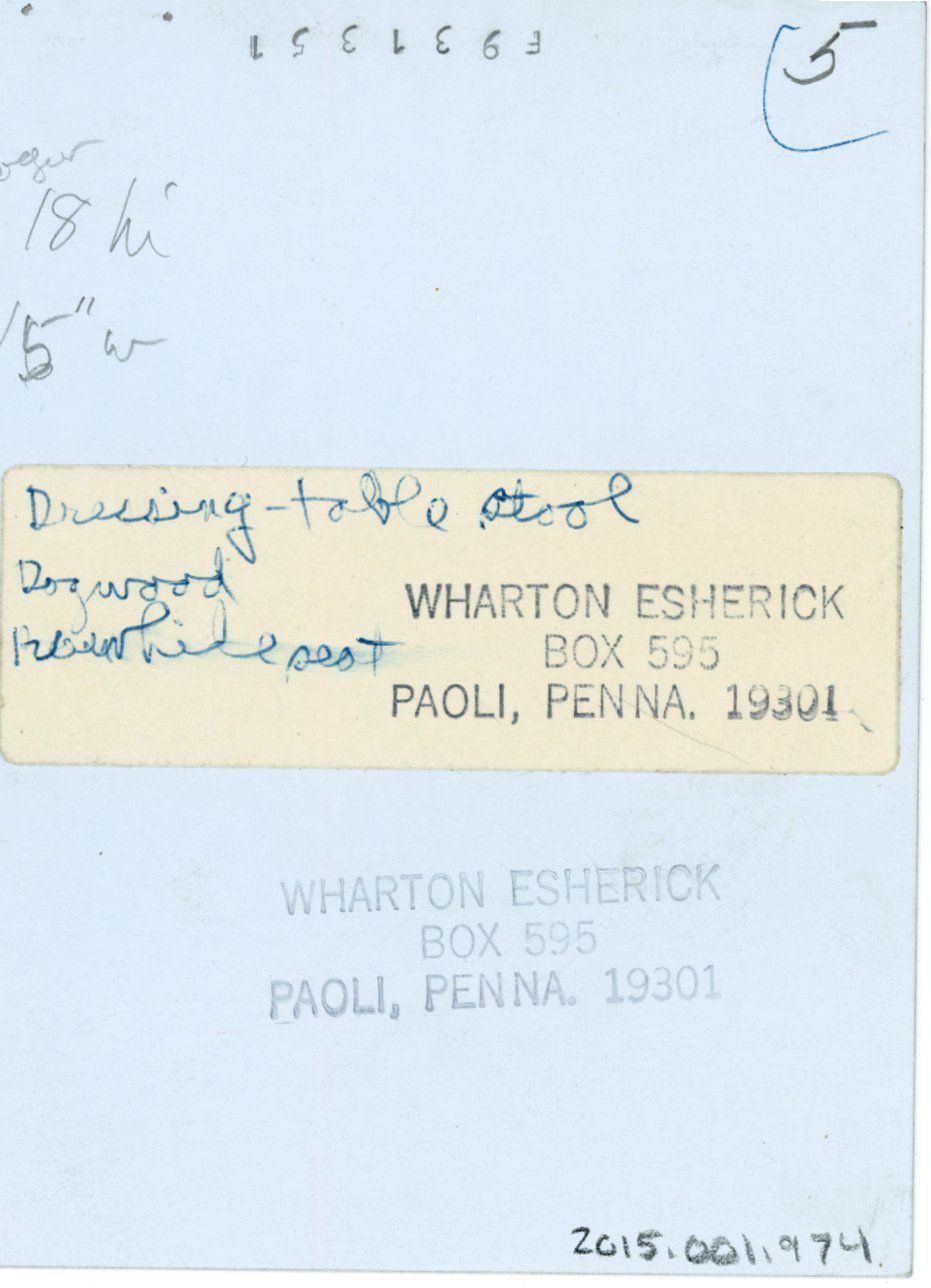 F931351
5
18 hi
15" w
Dressing-table stool
Dogwood
Rawhide seat
WHARTON ESHERICK
BOX 595
PAOLI, PENNA. 19301
WHARTON ESHERICK
BOX 595
PAOLI, PENNA. 19301
2015.001.974